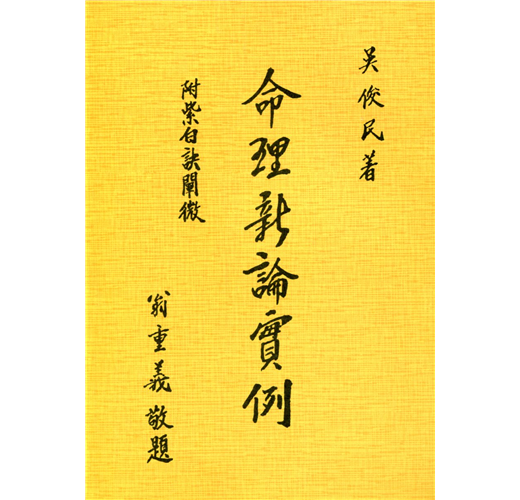 吴俊民著
命理新論實例
附紫白訣闡微
翁重義敬題